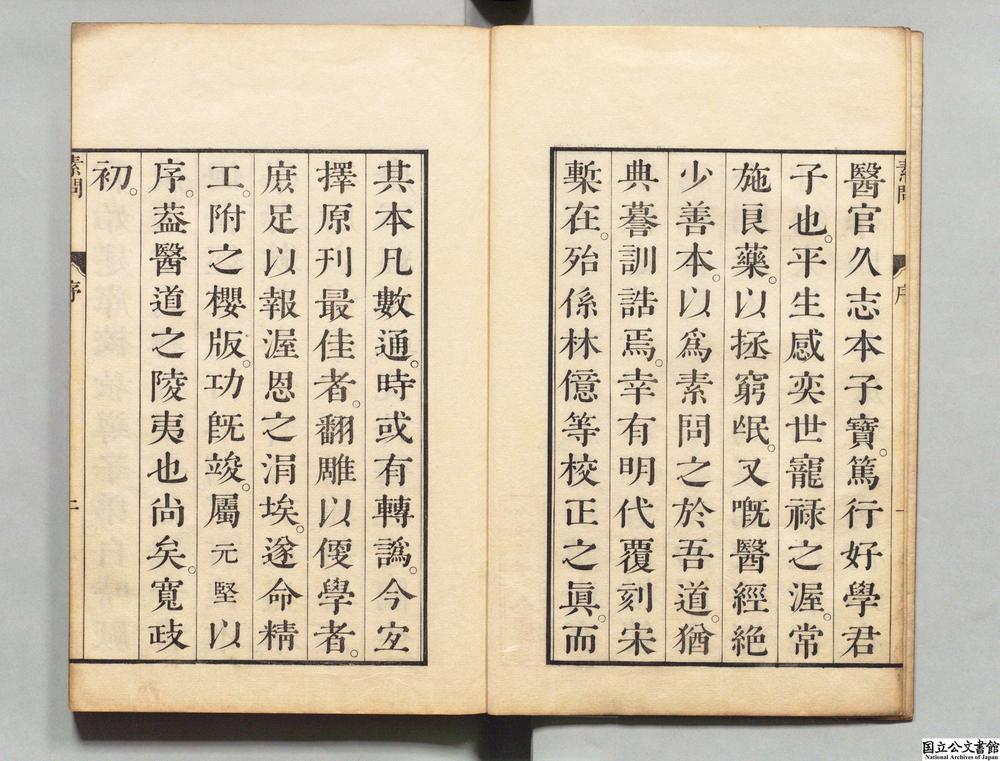 醫官久志本子寶。篤行好學君
子也。平生感奕世寵祿之渥。常
施良藥。以拯窮氓。又嘅醫經絕
少善本。以爲素問之於吾道。猶
典謩訓誥焉。幸有明代覆刻宋
槧在。殆係林億等校正之眞。而
素問
序
一
其本凡數通。時或有轉譌。今玄
擇原刊最佳者。翻雕以便學者。
庶足以報渥恩之涓埃。遂命精
工。附之櫻版。功旣竣。屬元堅以
序。葢醫道之陵夷也尙矣。寬政
初。
素問
序
国立公文書館
National Archives of Japan